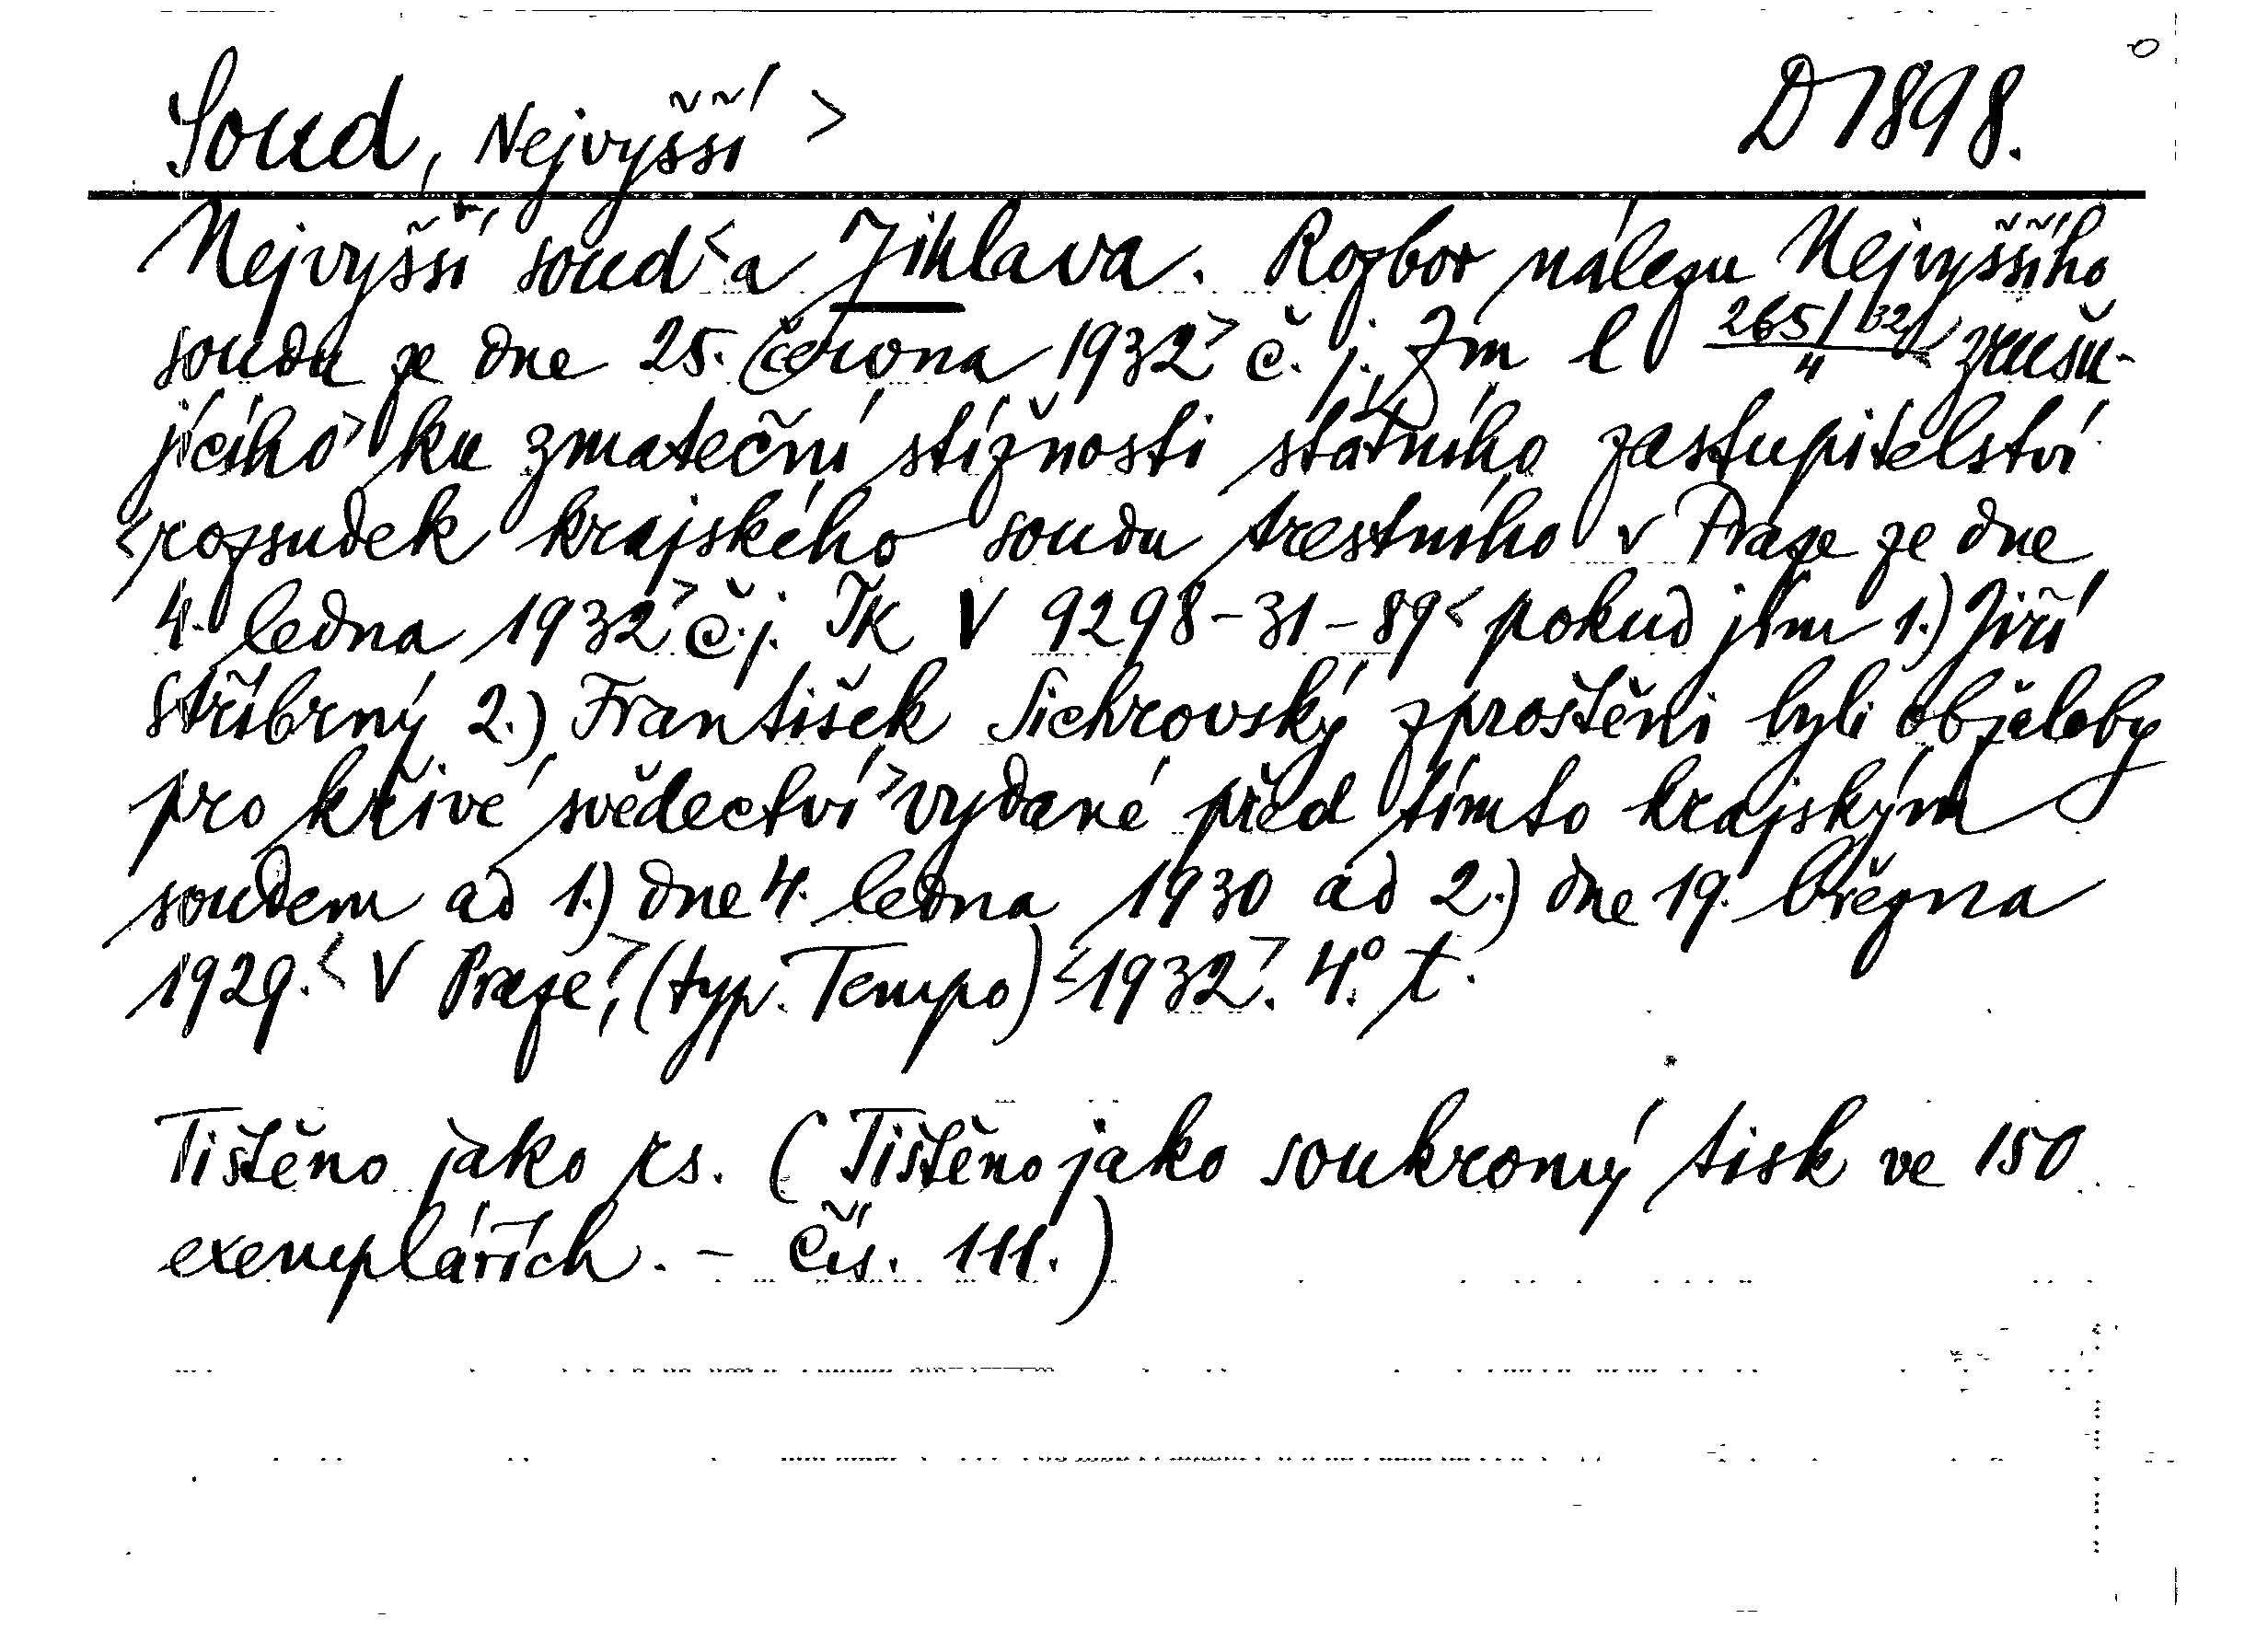 Soud, Nejvyšší > D 1898.
Nejvyšší soud < a Jihlava. Rozbor nálezu Nejvyššího
soudu ze dne 25. června 1932 > č. j. Zm I 265/32/4 < zrušu-
jícího > ku zmateční stížnosti státního zastupitelství
< rozsudek krajského soudu trestního v Praze ze dne
4. ledna 1932 > č. j. Tk V 9298-31-89 < pokud jím 1.) Jiří
Stříbrný 2.) František Sichrovský zproštěni byli obžaloby
pro křivé svědectví > vydané před tímto krajským
soudem ad 1.) dne 4. ledna 1930 ad 2.) dne 19. března
1929. < V Praze >, (typ. Tempo) < 1932 >. 4°. t.
Tištěno jako rs. (Tištěno jako soukromý tisk ve 150
exemplářích. - Čís. 111.)